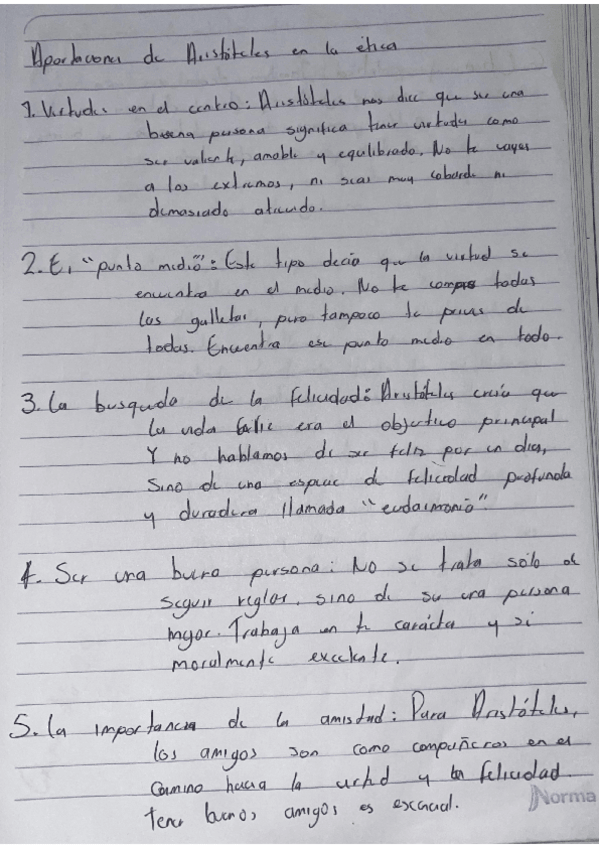 Aportaciones de Aristóteles en la ética
1. Virtudes en el centro: Aristóteles nos dice que ser una
buena persona significa tener virtudes como
ser valiente, amable y equilibrado. No te vayas
a los extremos, ni seas muy cobarde ni
demasiado atrevido.
2. El "punto medio": Este tipo decía que la virtud se
encuentra en el medio. No te compres todas
las galletas, pero tampoco te prives de
todas. Encuentra ese punto medio en todo.
3. La busqueda de la felicidad: Aristóteles creía que
la vida feliz era el objetivo principal
Y no hablamos de ser feliz por un dia,
Sino de una especie de felicidad profunda
y duradera llamada "eudaimonio".
4. Ser una buena persona: No se trata solo de
seguir reglas, sino de ser una persona
mejor. Trabaja en tu carácter y sé
moralmente excelente.
5. La importancia de la amistad: Para Aristóteles,
los amigos son como compañeros en el
camino hacia la virtud y la felicidad.
tener buenos amigos es esencial.
Norma